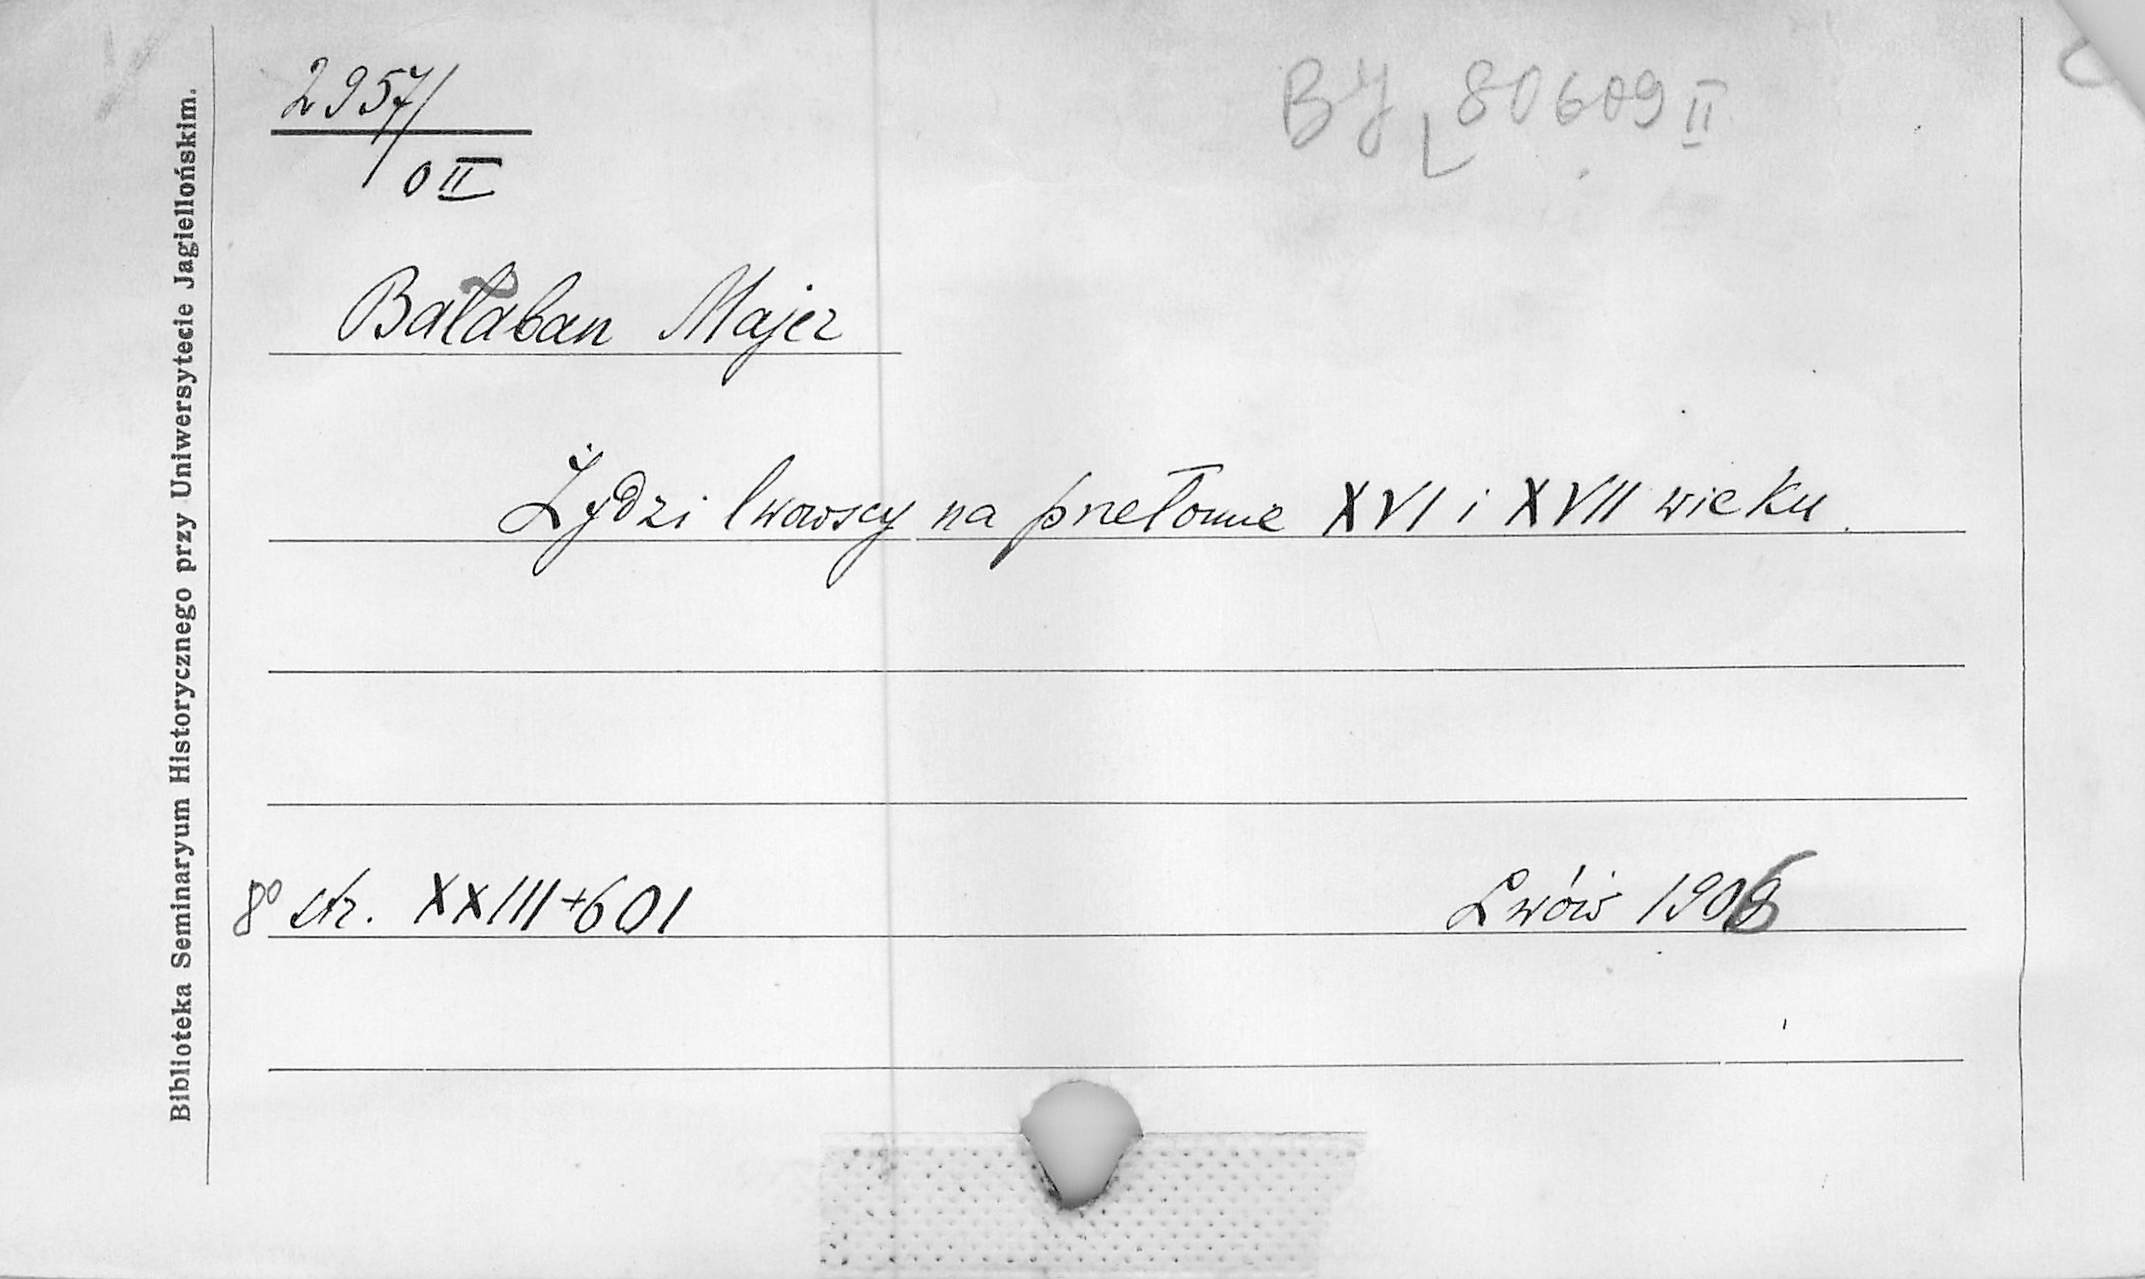 Biblioteka Seminaryum Historycznego przy Uniwersytecie Jagiellońskim.
2957/
0 II
BJ L 80609 II
Bałaban Majer
Żydzi lwowscy na przełomie XVI i XVII wieku.
8° str. XXIII+601
Lwów 1906